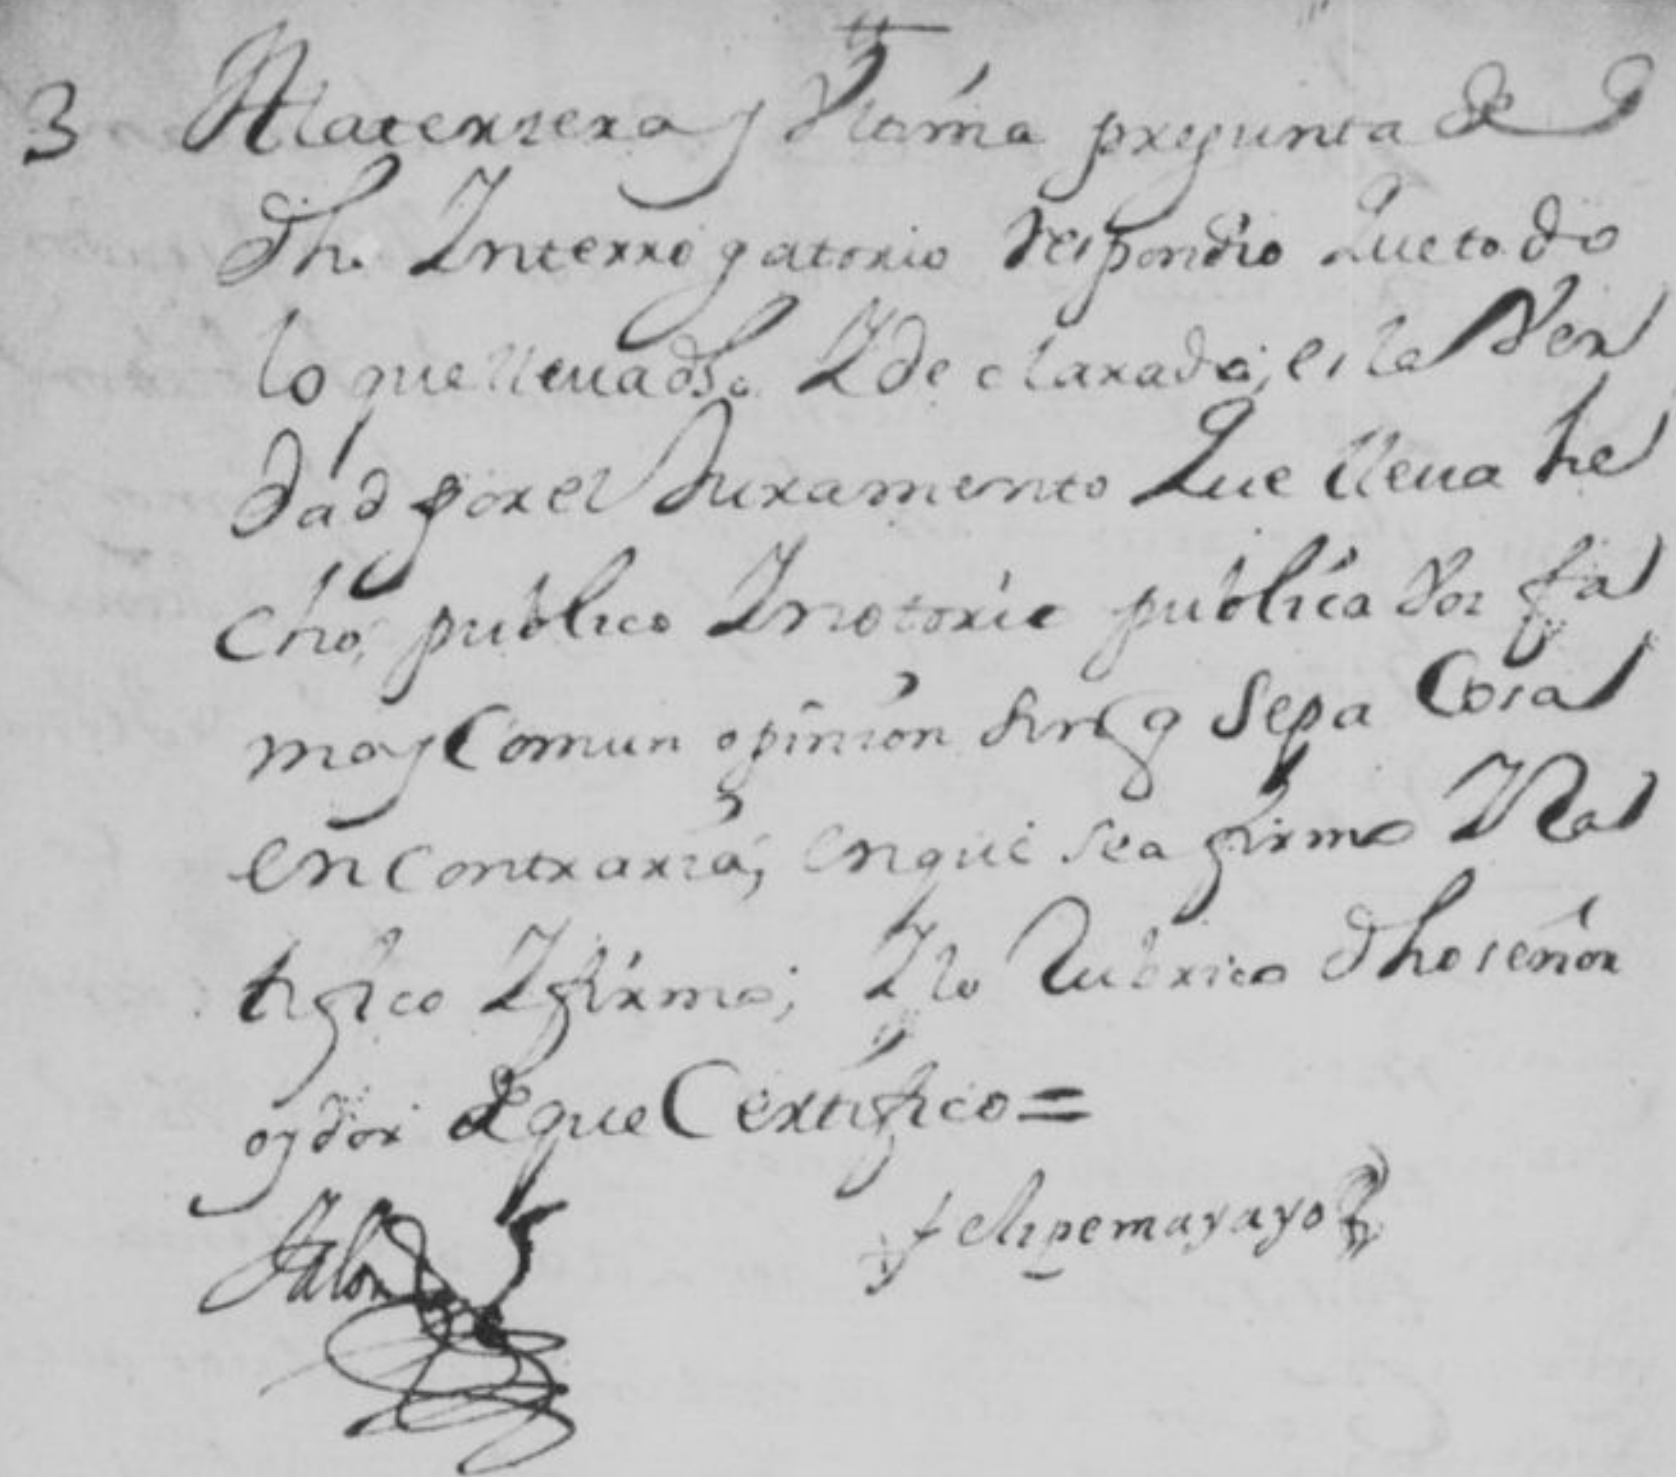 3 A la terzera y Vltima pregunta de
dho Interrogatorio Respondio Que todo
lo que lleua dho Y de clarado, es la Ver
dad por el Juramento Que lleua he
cho, publico Y notorio publica Vos fa
ma y Comun opinion sin q Sepa Cosa
en contrario, en que se afirmo Y Ra
tifico Y firmo; Y lo Rubrico dho señor
oydor de que Certifico =
felipe mayayo